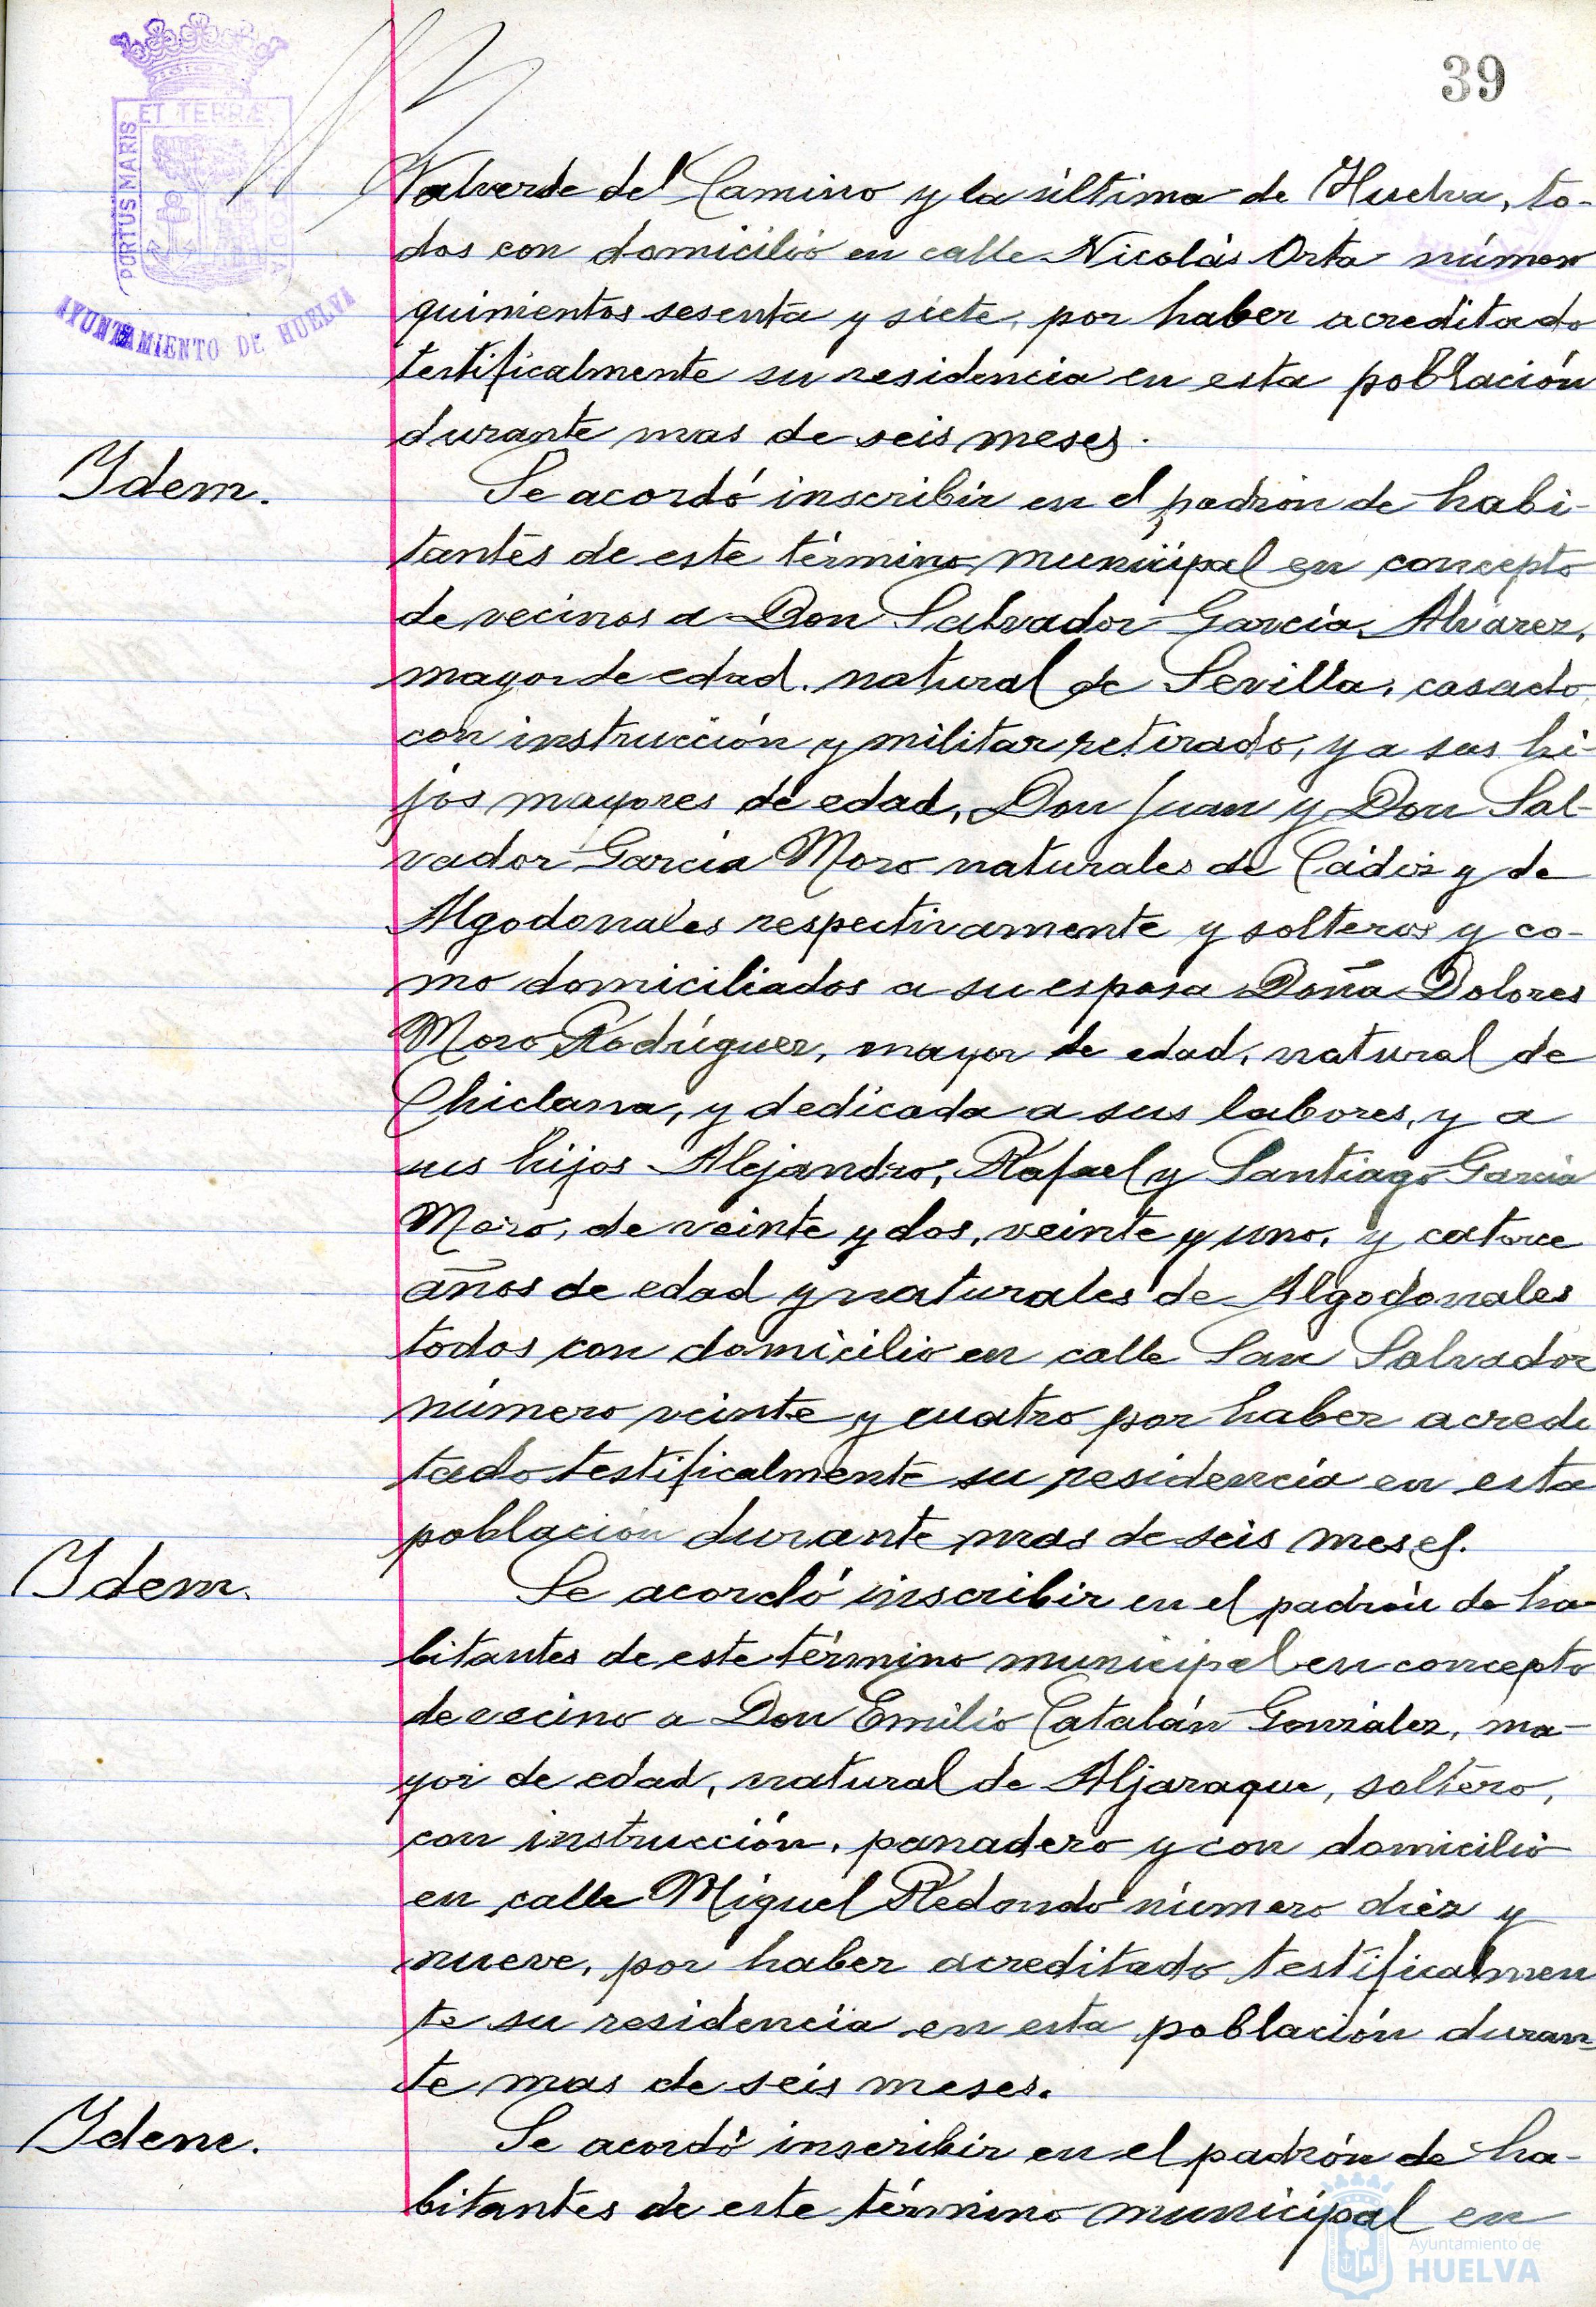 39
PORTUS MARIS
ET TERRÆ
CUSTODIA
AYUNTAMIENTO DE HUELVA
Valverde del Camino y la última de Huelva, to-
dos con domicilio en calle Nicolás Orta número
quinientos sesenta y siete, por haber acreditado
testificalmente su residencia en esta población
durante mas de seis meses.
Idem.
Se acordó inscribir en el padrón de habi-
tantes de este término municipal en concepto
de vecinos a Don Salvador García Alvarez,
mayor de edad, natural de Sevilla, casado,
con instrucción y militar retirado, y a sus hi-
jos mayores de edad, Don Juan y Don Sal-
vador García Moro naturales de Cádiz y de
Algodonales respectivamente y solteros y co-
mo domiciliados a su esposa Doña Dolores
Moro Rodríguez, mayor de edad, natural de
Chiclana, y dedicada a sus labores, y a
sus hijos Alejandro, Rafael y Santiago García
Moro, de veinte y dos, veinte y uno, y catorce
años de edad y naturales de Algodonales
todos con domicilio en calle San Salvador
número veinte y cuatro por haber acredi
tado testificalmente su residencia en esta
población durante mas de seis meses.
Idem.
Se acordó inscribir en el padrón de ha-
bitantes de este término municipal en concepto
de vecino a Don Emilio Catalán González, ma-
yor de edad, natural de Aljaraque, soltero,
con instrucción, panadero y con domicilio
en calle Miguel Redondo número diez y
nueve, por haber acreditado testificalmen
te su residencia en esta población duran-
te mas de seis meses.
Idem.
Se acordó inscribir en el padrón de ha-
bitantes de este término municipal en
Ayuntamiento de
HUELVA